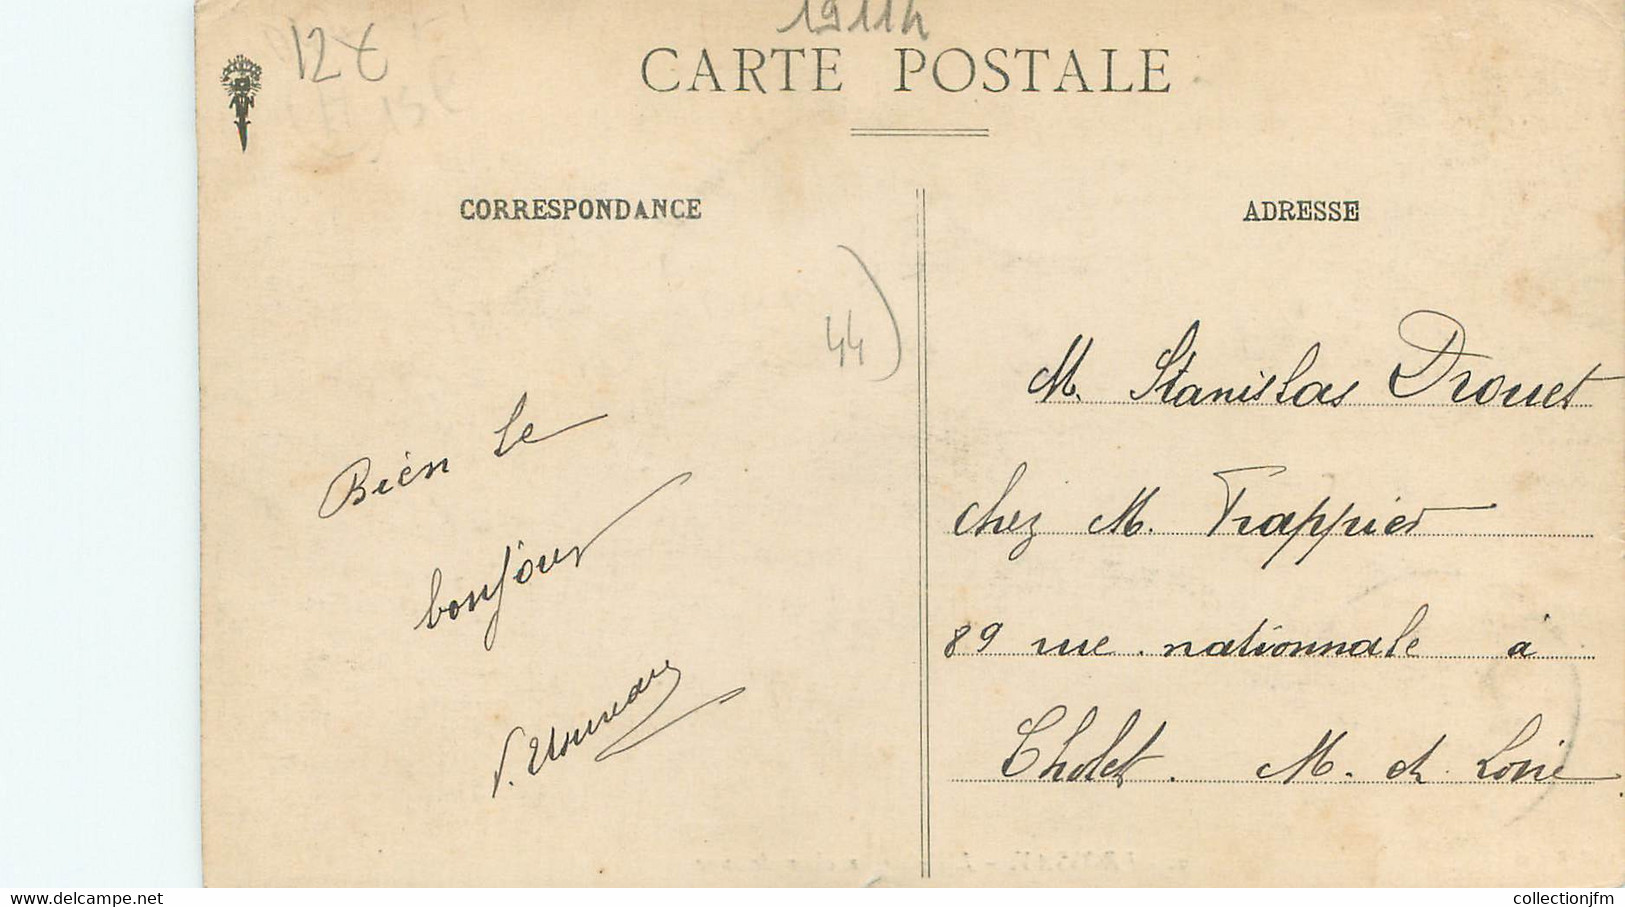 19114
12€
CARTE POSTALE
CORRESPONDANCE
44)
Bien le
bonjour
ADRESSE
M. Stanislas Drouet
chez M. Trappier
89 rue nationnale à
Cholet. M. et Loire
collectionjfm